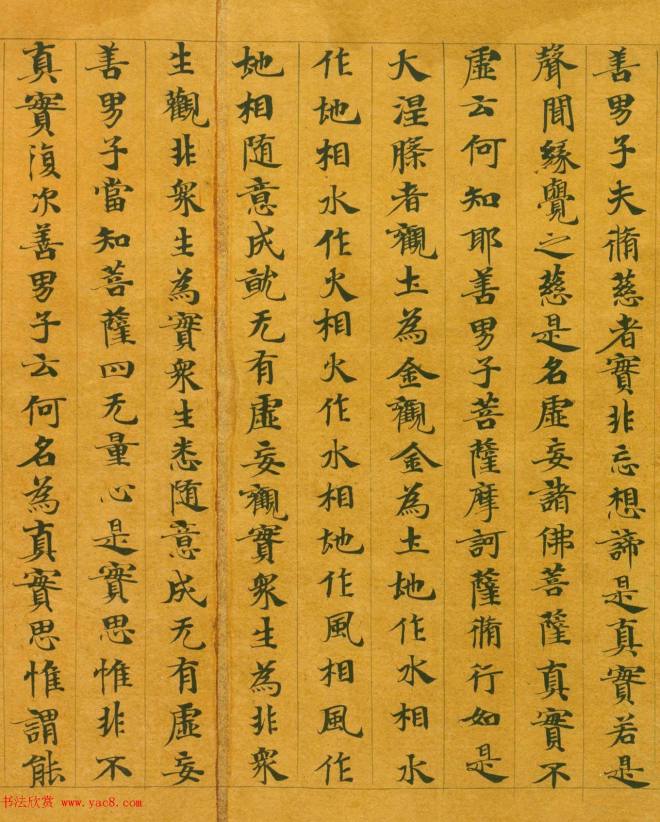 善男子夫脩慈者實非忘想諦是真實若是
聲聞緣覺之慈是名虛妄諸佛菩薩真實不
虛云何知耶善男子菩薩摩訶薩脩行如是
大涅槃者觀土為金觀金為土地作水相水
作地相水作火相火作水相地作風相風作
地相随意成就无有虛妄觀實衆生為非衆
生觀非衆生為實衆生悉随意成无有虛妄
善男子當知菩薩四无量心是實思惟非不
真實復次善男子云何名為真實思惟謂能
书法欣赏 www.yac8.com